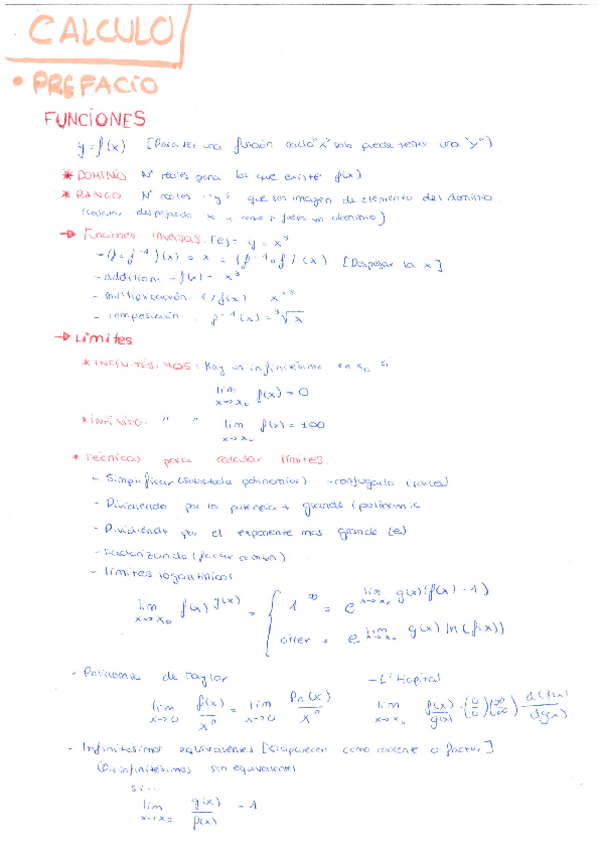 CALCULO
• PREFACIO
FUNCIONES
y = f(x) [Para ser una función cada "x" solo puede tener una "y"]
* DOMINIO Nº reales para los que existe f(x)
* RANGO Nº reales "y" que son imagen de elemento del dominio.
despejando x y como si fuera un dominio)
→ Funciones inversas. y = x³
(x) = x = (f⁻¹ ∘ f)(x) [Despejar la x]
- addition - f(x) = - x³
- multiplicación f(x) x⁻³
- composición f⁻¹(x) = ³√x
→ Límites
* INFINITÉSIMOS: Hay un infinitésimo en x₀ si
lim x→x₀ f(x) = 0
* INFINITO. " " lim x→x₀ f(x) = ±∞
* Técnicas para calcular límites.
- Simplificar polinomios) - conjugado
- Dividiendo por la potencia + grande (polinomio
- Dividiendo por el exponente mas grande (e)
- Factorizando (factor comun)
- Límites logaritmicos
lim x→x₀ f(x)^g(x) = { 1^∞ = e^lim x→x₀ g(x)(f(x) - 1)
= e^lim x→x₀ g(x) ln(f(x))
- Polinomio de Taylor - L'Hopital
lim x→0 f(x)/xⁿ = lim x→0 Pn(x)/xⁿ lim x→x₀ f(x)/g(x) (0/0)(∞/∞)
- Infinitesimos equivalentes [Disaparecen como cociente o factor]
infinitésimos son equivalentes
si...
lim g(x)/f(x) = 1